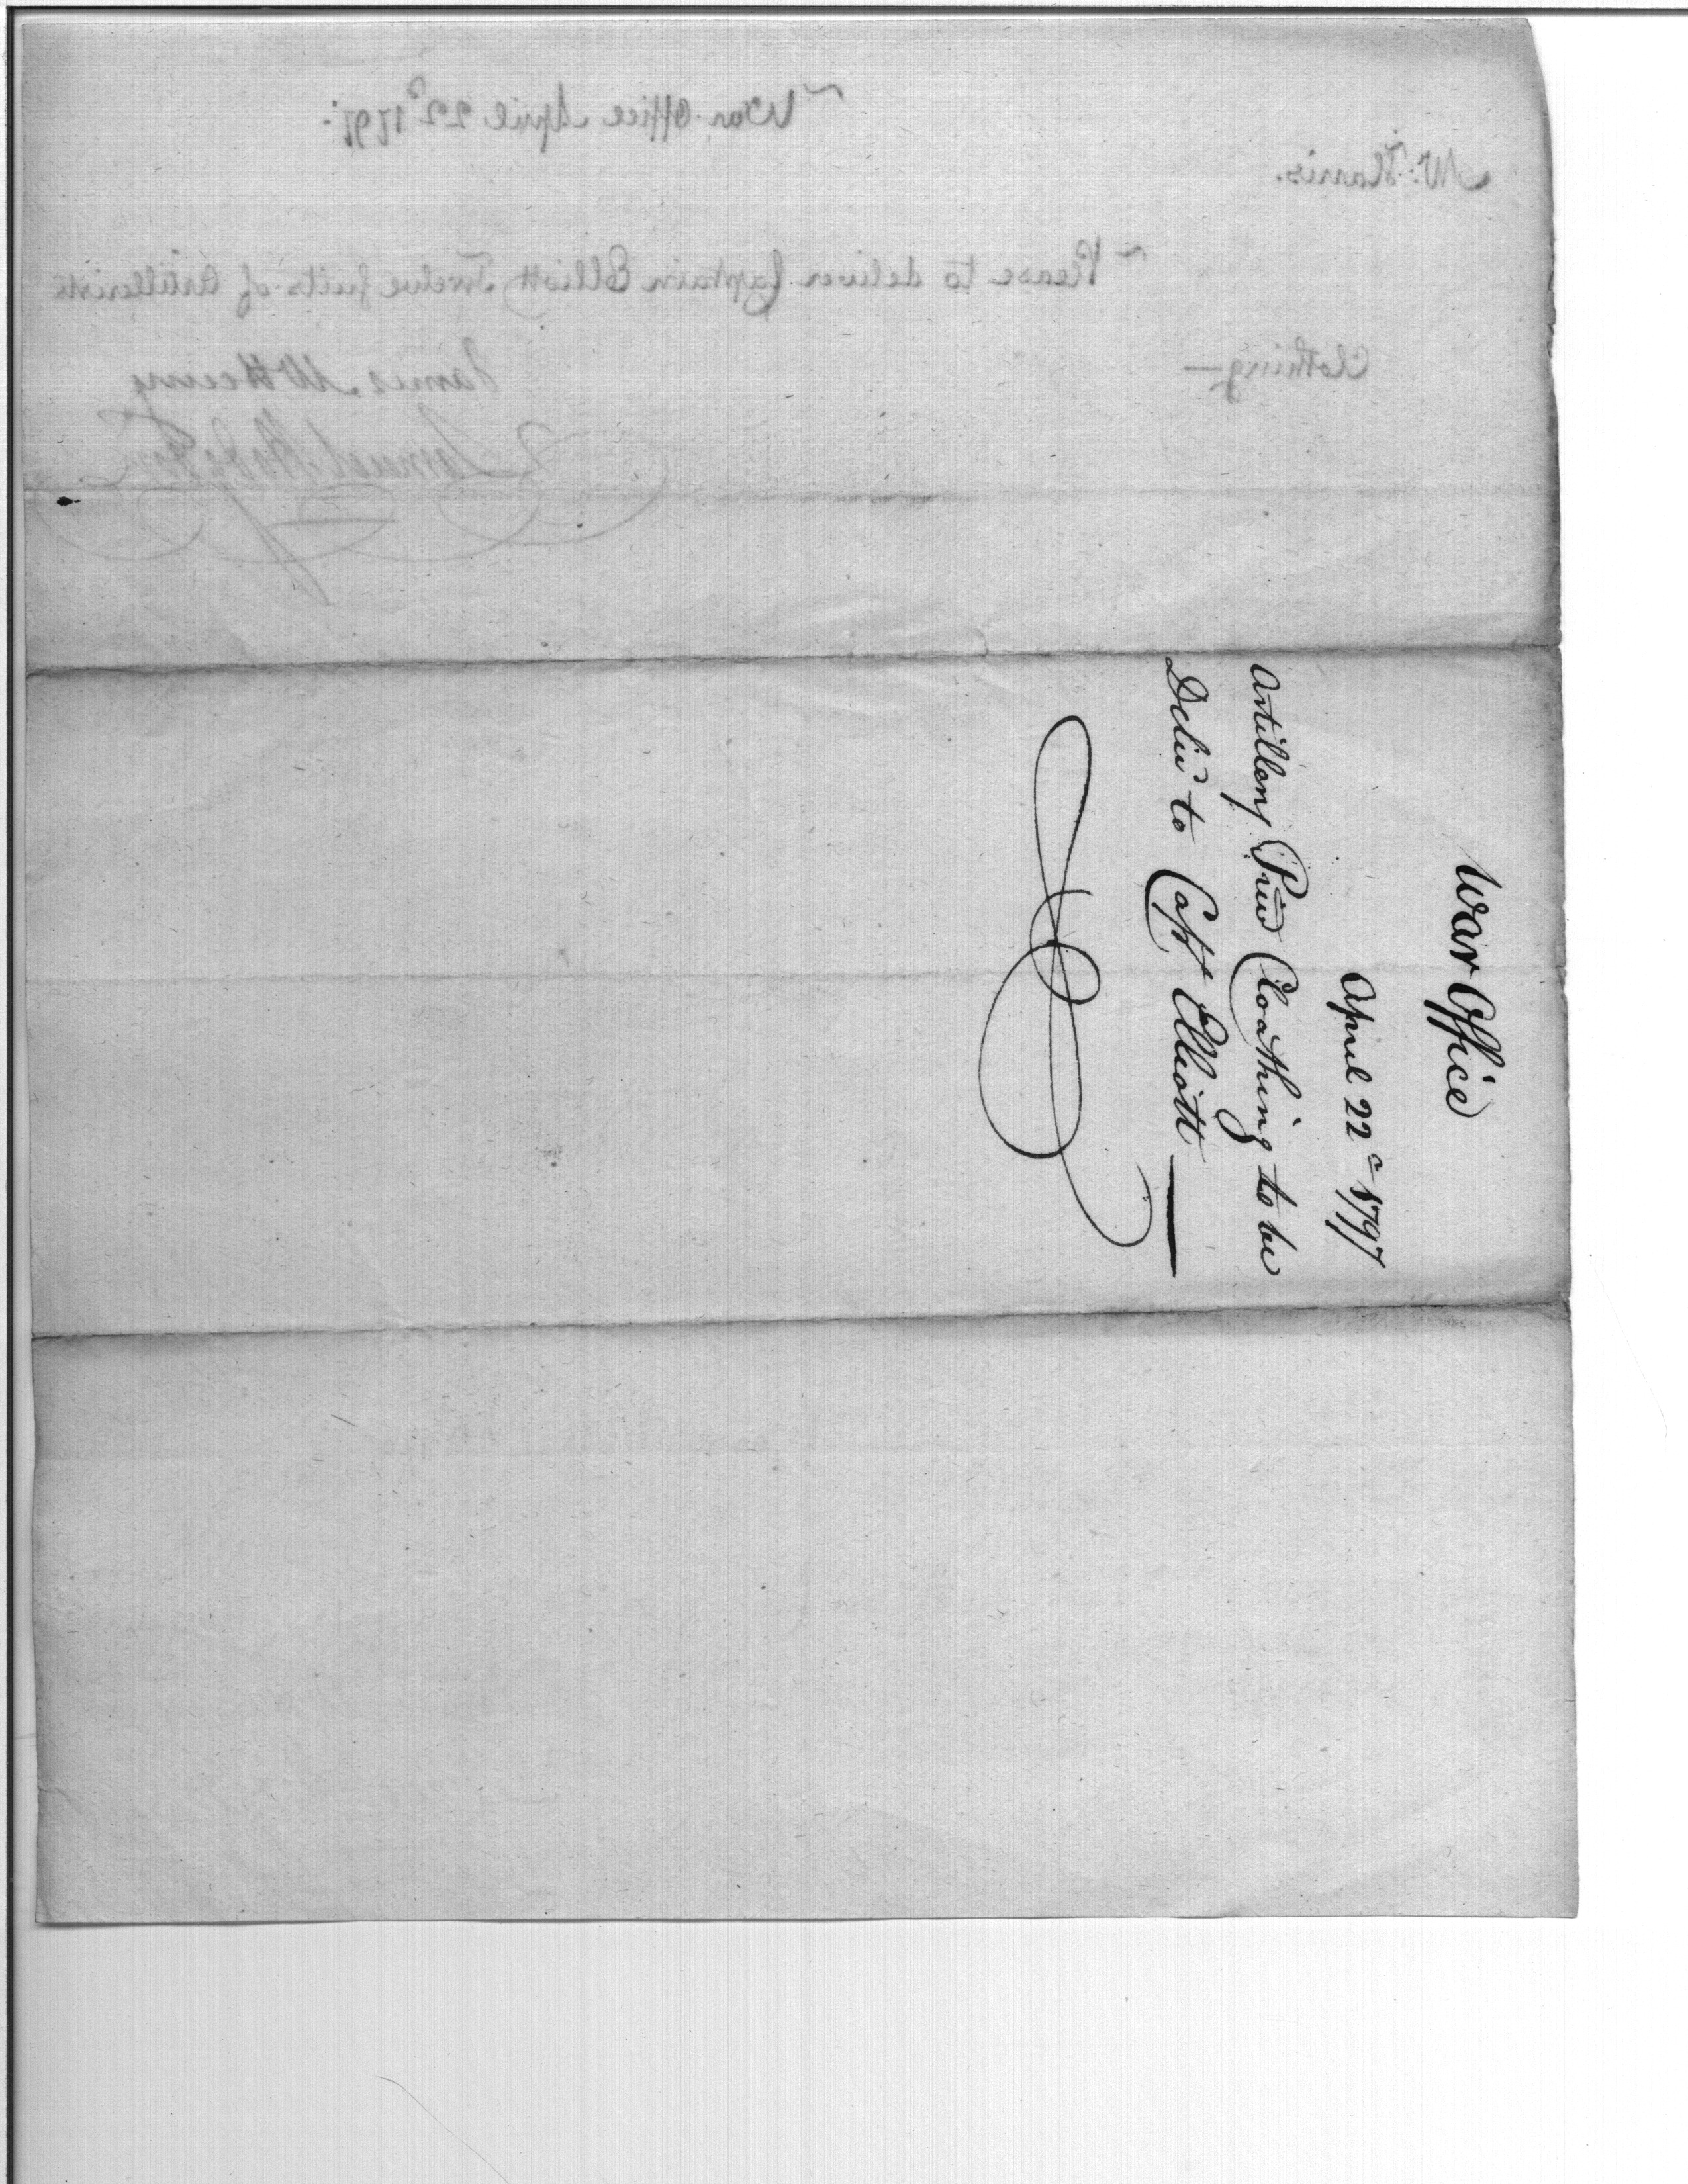 War Office April 22d 1797.
Mr. Harris.
Please to deliver Captain Elliott Twelve suits of Artillerists
Clothing —
James McHenry
Samuel Hodgdon
War Office
April 22d 1797
Artillery Priv Cloathing to be
Deliv to Capt Elliott —